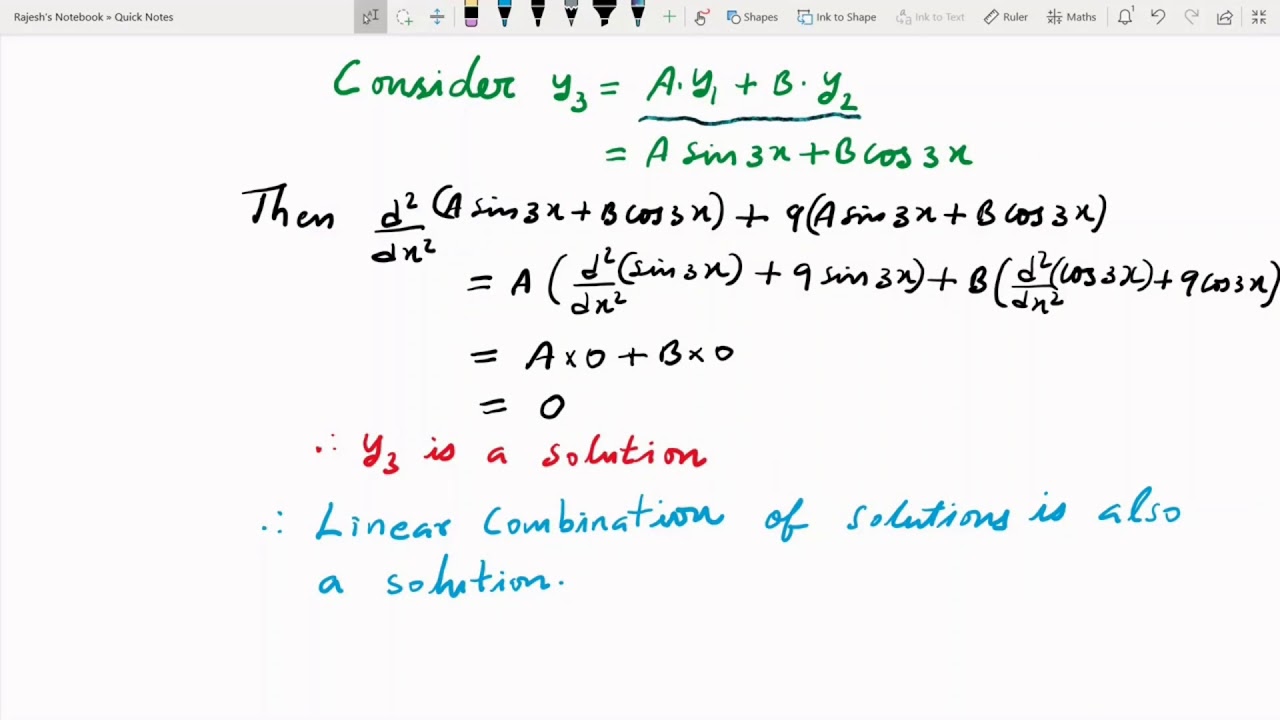 Rajesh's Notebook » Quick Notes
Shapes Ink to Shape Ink to Text Ruler Maths
Consider y₃ = A·y₁ + B·y₂
= A sin 3x + B cos 3x
Then d²/dx² (A sin 3x + B cos 3x) + 9(A sin 3x + B cos 3x)
= A (d²/dx² (sin 3x) + 9 sin 3x) + B (d²/dx² (cos 3x) + 9 cos 3x)
= A × 0 + B × 0
= 0
∴ y₃ is a solution
∴ Linear combination of solutions is also
a solution.